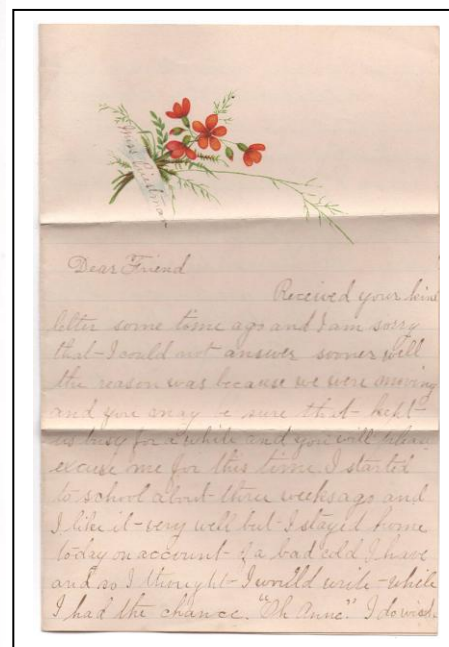 Miss
Dear Friend
Received your kind
letter some time ago and I am sorry
that I could not answer sooner well
the reason was because we were moving
and you may be sure that kept
us busy for a while and you will please
excuse me for this time. I started
to school about three weeks ago and
I like it very well but I stayed home
today on account of a bad cold I have
and so I thought I would write while
I had the chance. "Oh Anne." I do wish